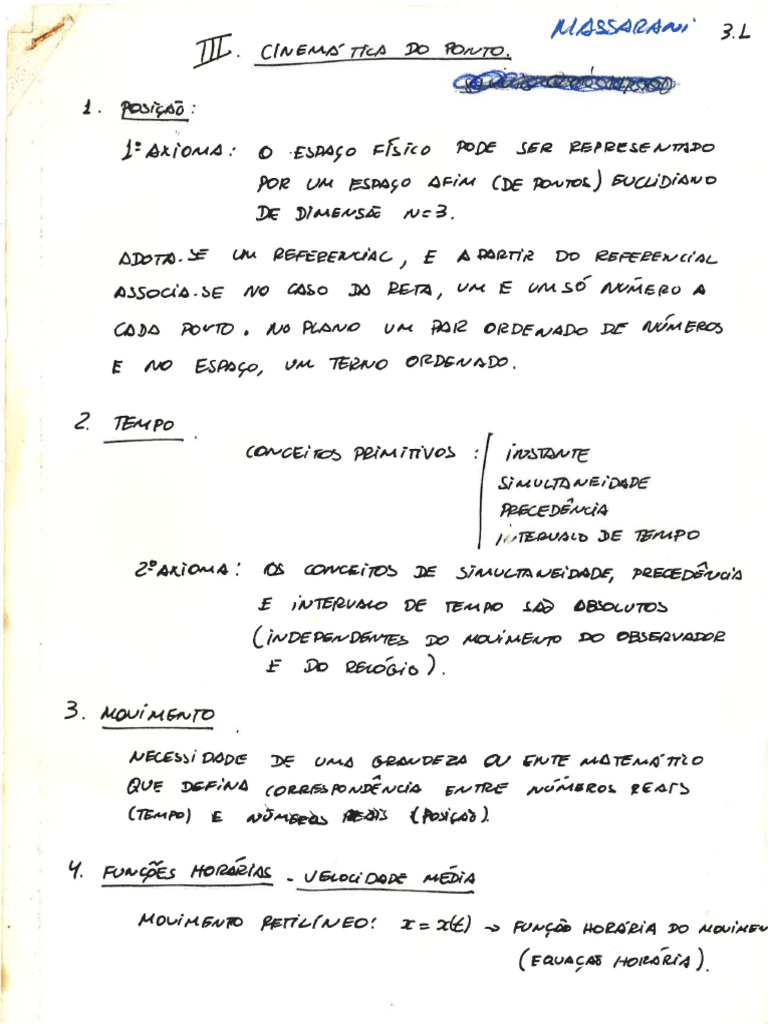 MASSARANI 3.L
III. CINEMÁTICA DO PONTO.
1. POSIÇÃO:
1º AXIOMA: O ESPAÇO FÍSICO PODE SER REPRESENTADO
POR UM ESPAÇO AFIM (DE PONTOS) EUCLIDIANO
DE DIMENSÃO N=3.
ADOTA-SE UM REFERENCIAL, E A PARTIR DO REFERENCIAL
ASSOCIA-SE NO CASO DA RETA, UM E UM SÓ NÚMERO A
CADA PONTO. NO PLANO UM PAR ORDENADO DE NÚMEROS
E NO ESPAÇO, UM TERNO ORDENADO.
2. TEMPO
CONCEITOS PRIMITIVOS : INSTANTE
SIMULTANEIDADE
PRECEDÊNCIA
INTERVALO DE TEMPO
2º AXIOMA: OS CONCEITOS DE SIMULTANEIDADE, PRECEDÊNCIA
E INTERVALO DE TEMPO SÃO ABSOLUTOS
(INDEPENDENTES DO MOVIMENTO DO OBSERVADOR
E DO RELÓGIO).
3. MOVIMENTO
NECESSIDADE DE UMA GRANDEZA OU ENTE MATEMÁTICO
QUE DEFINA CORRESPONDÊNCIA ENTRE NÚMEROS REAIS
(TEMPO) E NÚMEROS REAIS (POSIÇÃO).
4. FUNÇÕES HORÁRIAS - VELOCIDADE MÉDIA
MOVIMENTO RETILÍNEO: x = x(t) → FUNÇÃO HORÁRIA DO MOVIMEN
(EQUAÇÃO HORÁRIA).